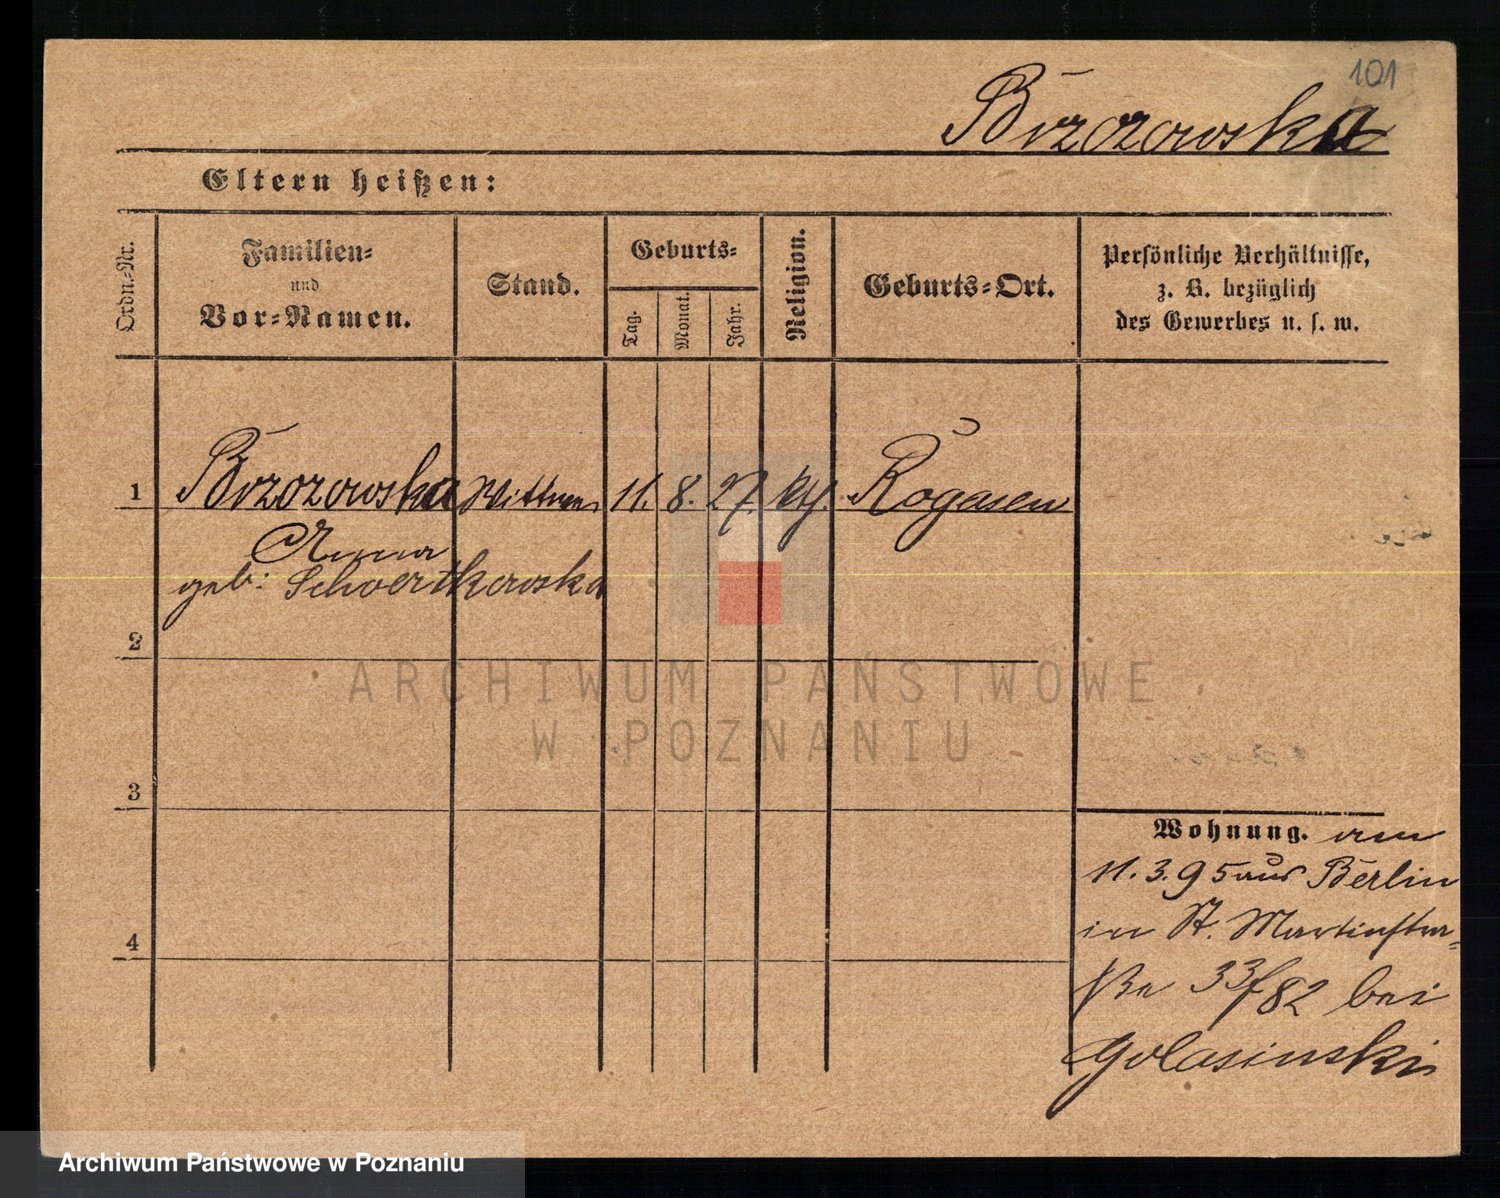 101
Brzozowska
Eltern heißen:
Ordn.-Nr.
Familien-
und
Vor-Namen.
Stand.
Geburts-
Tag.
Monat.
Jahr.
Religion.
Geburts-Ort.
Persönliche Verhältnisse,
z. B. bezüglich
des Gewerbes u. s. w.
1 Brzozowska Wittwe 11. 8. 27. kth. Rogasen
Anna
geb: Schwertkowska
2
3
4
Wohnung. am
11. 3. 95 aus Berlin
in St. Martinstra-
ße 33/82 bei
Golasinski
ARCHIWUM PAŃSTWOWE
W POZNANIU
Archiwum Państwowe w Poznaniu